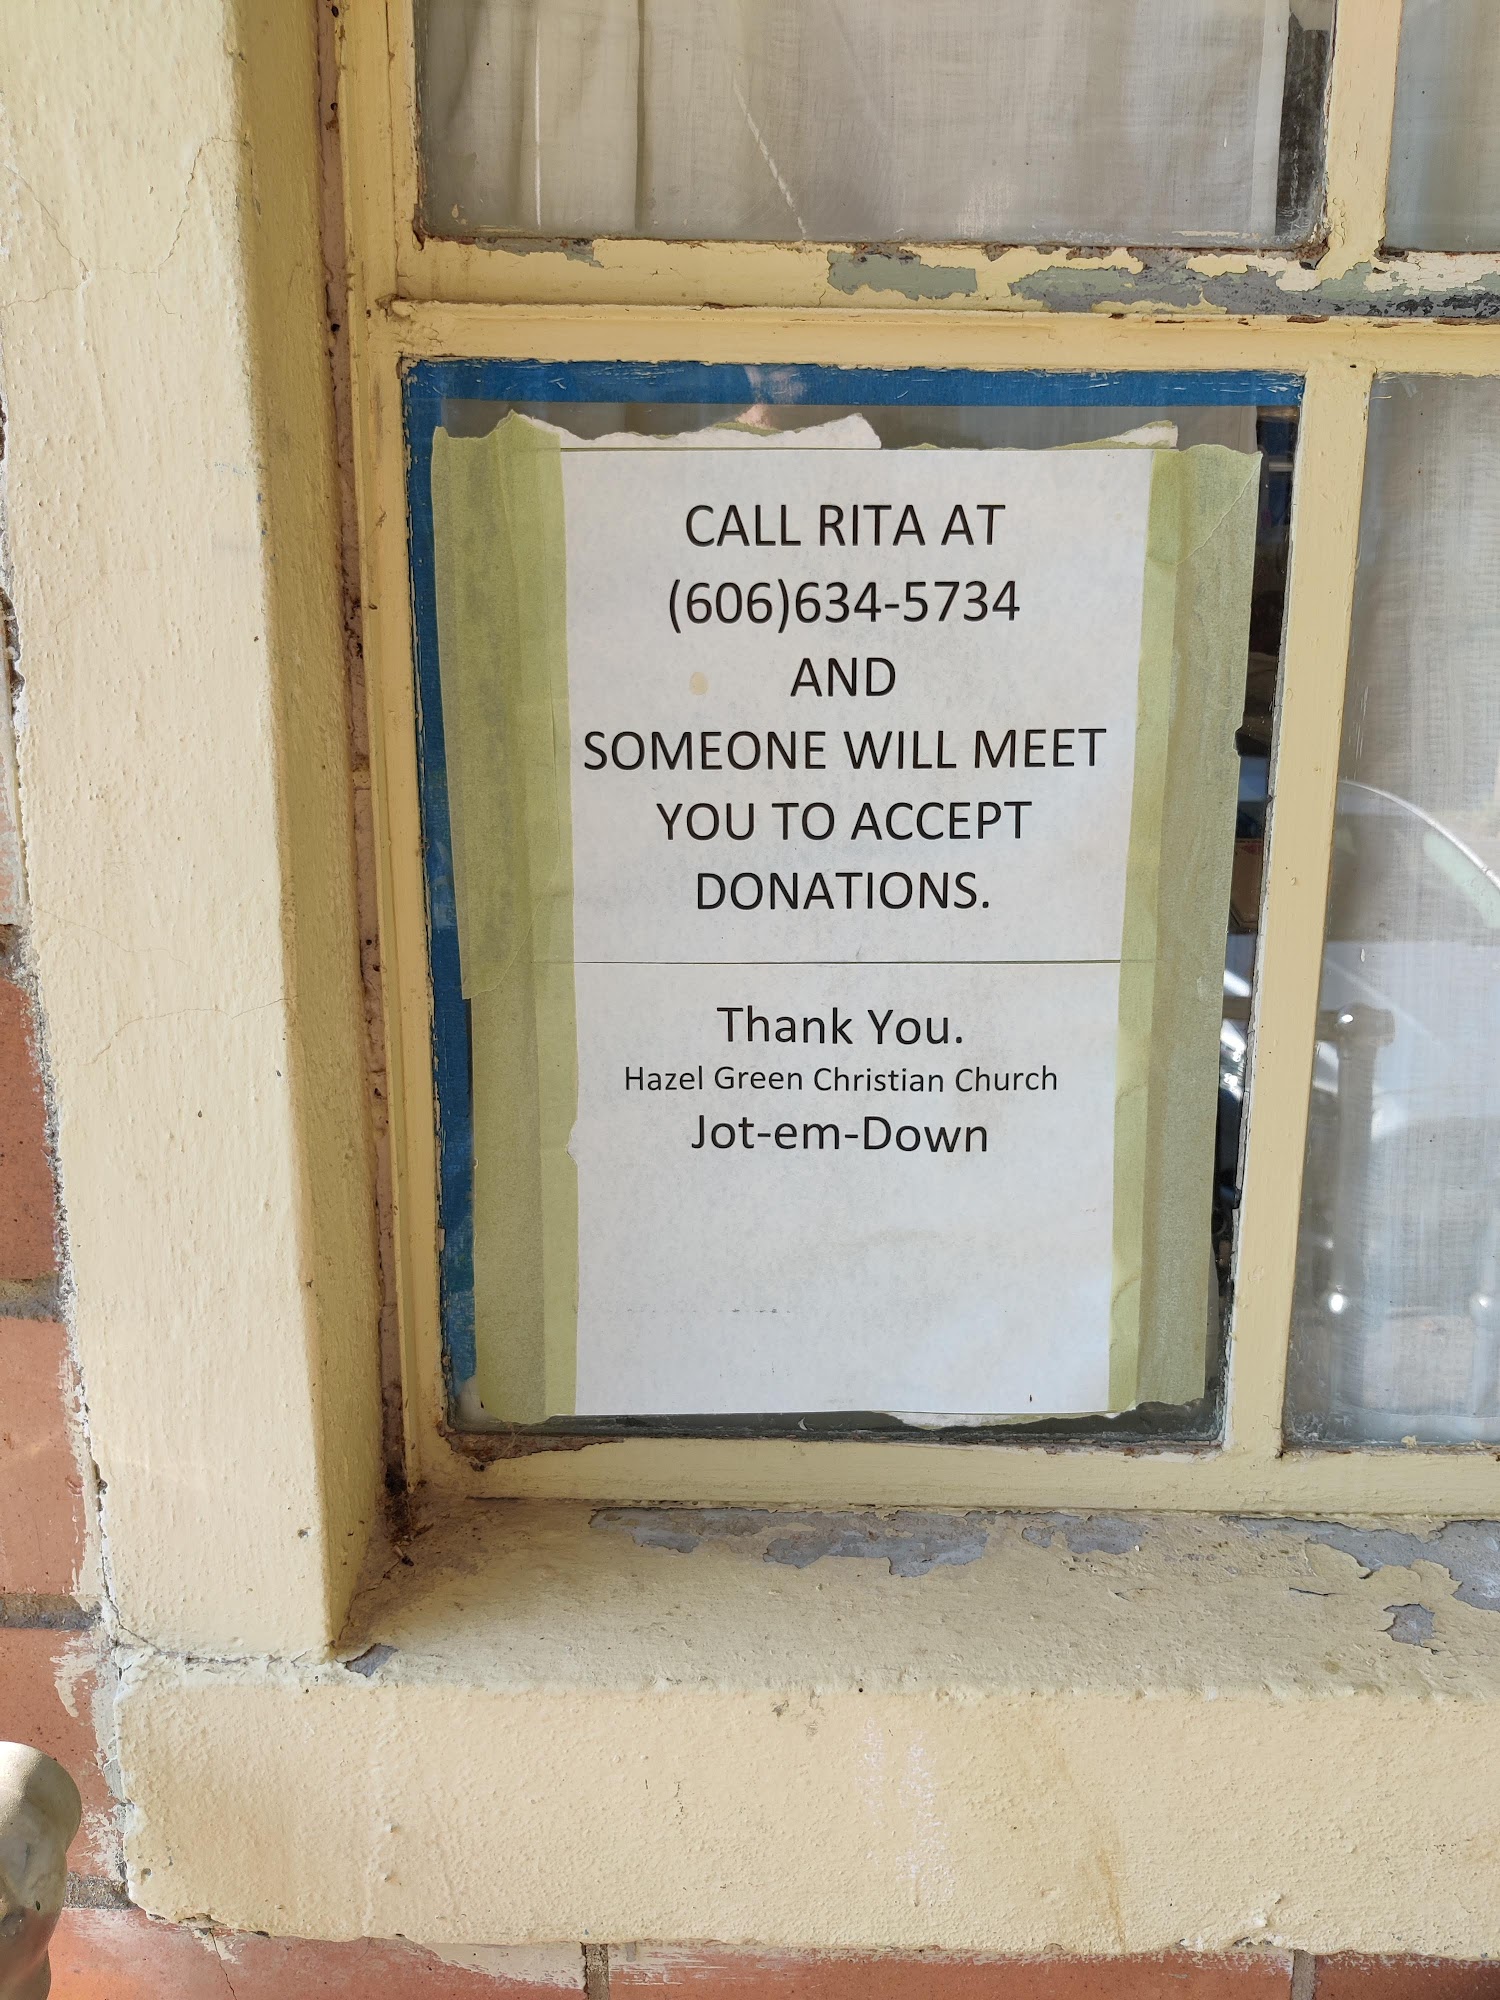 CALL RITA AT
(606)634-5734
AND
SOMEONE WILL MEET
YOU TO ACCEPT
DONATIONS.
Thank You.
Hazel Green Christian Church
Jot-em-Down